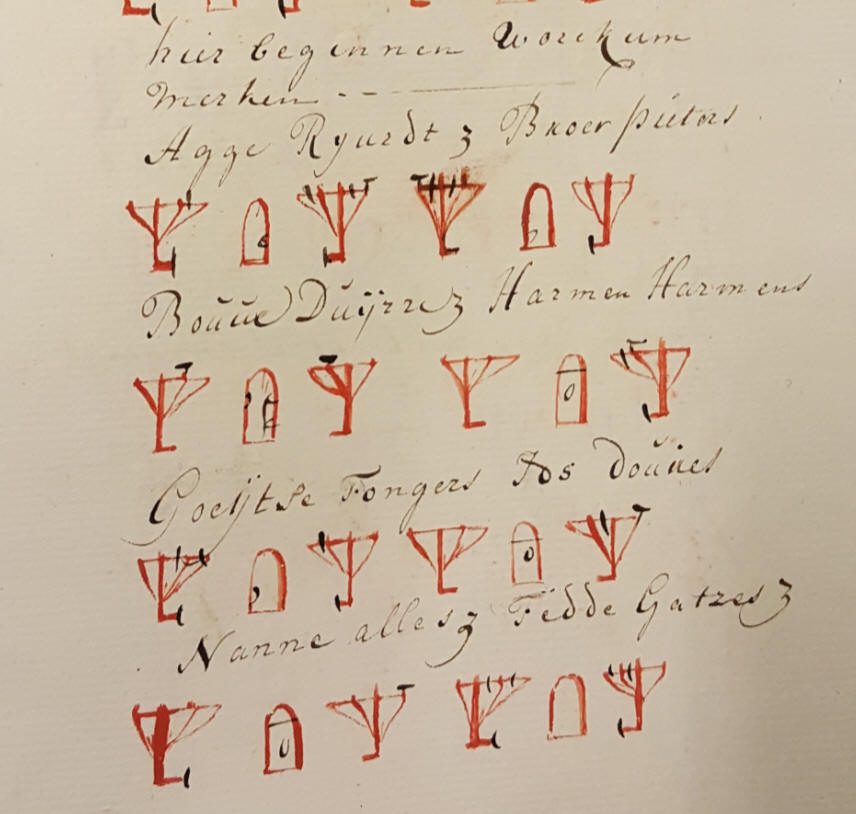 hier beginnen Worckum
merken
Agge Ryurdt z Broer pieters
Bouue Duijrre z Harmen Harmens
Goeijtse Fongers Jos douues
Nanne alles z Fedde Gatzes z